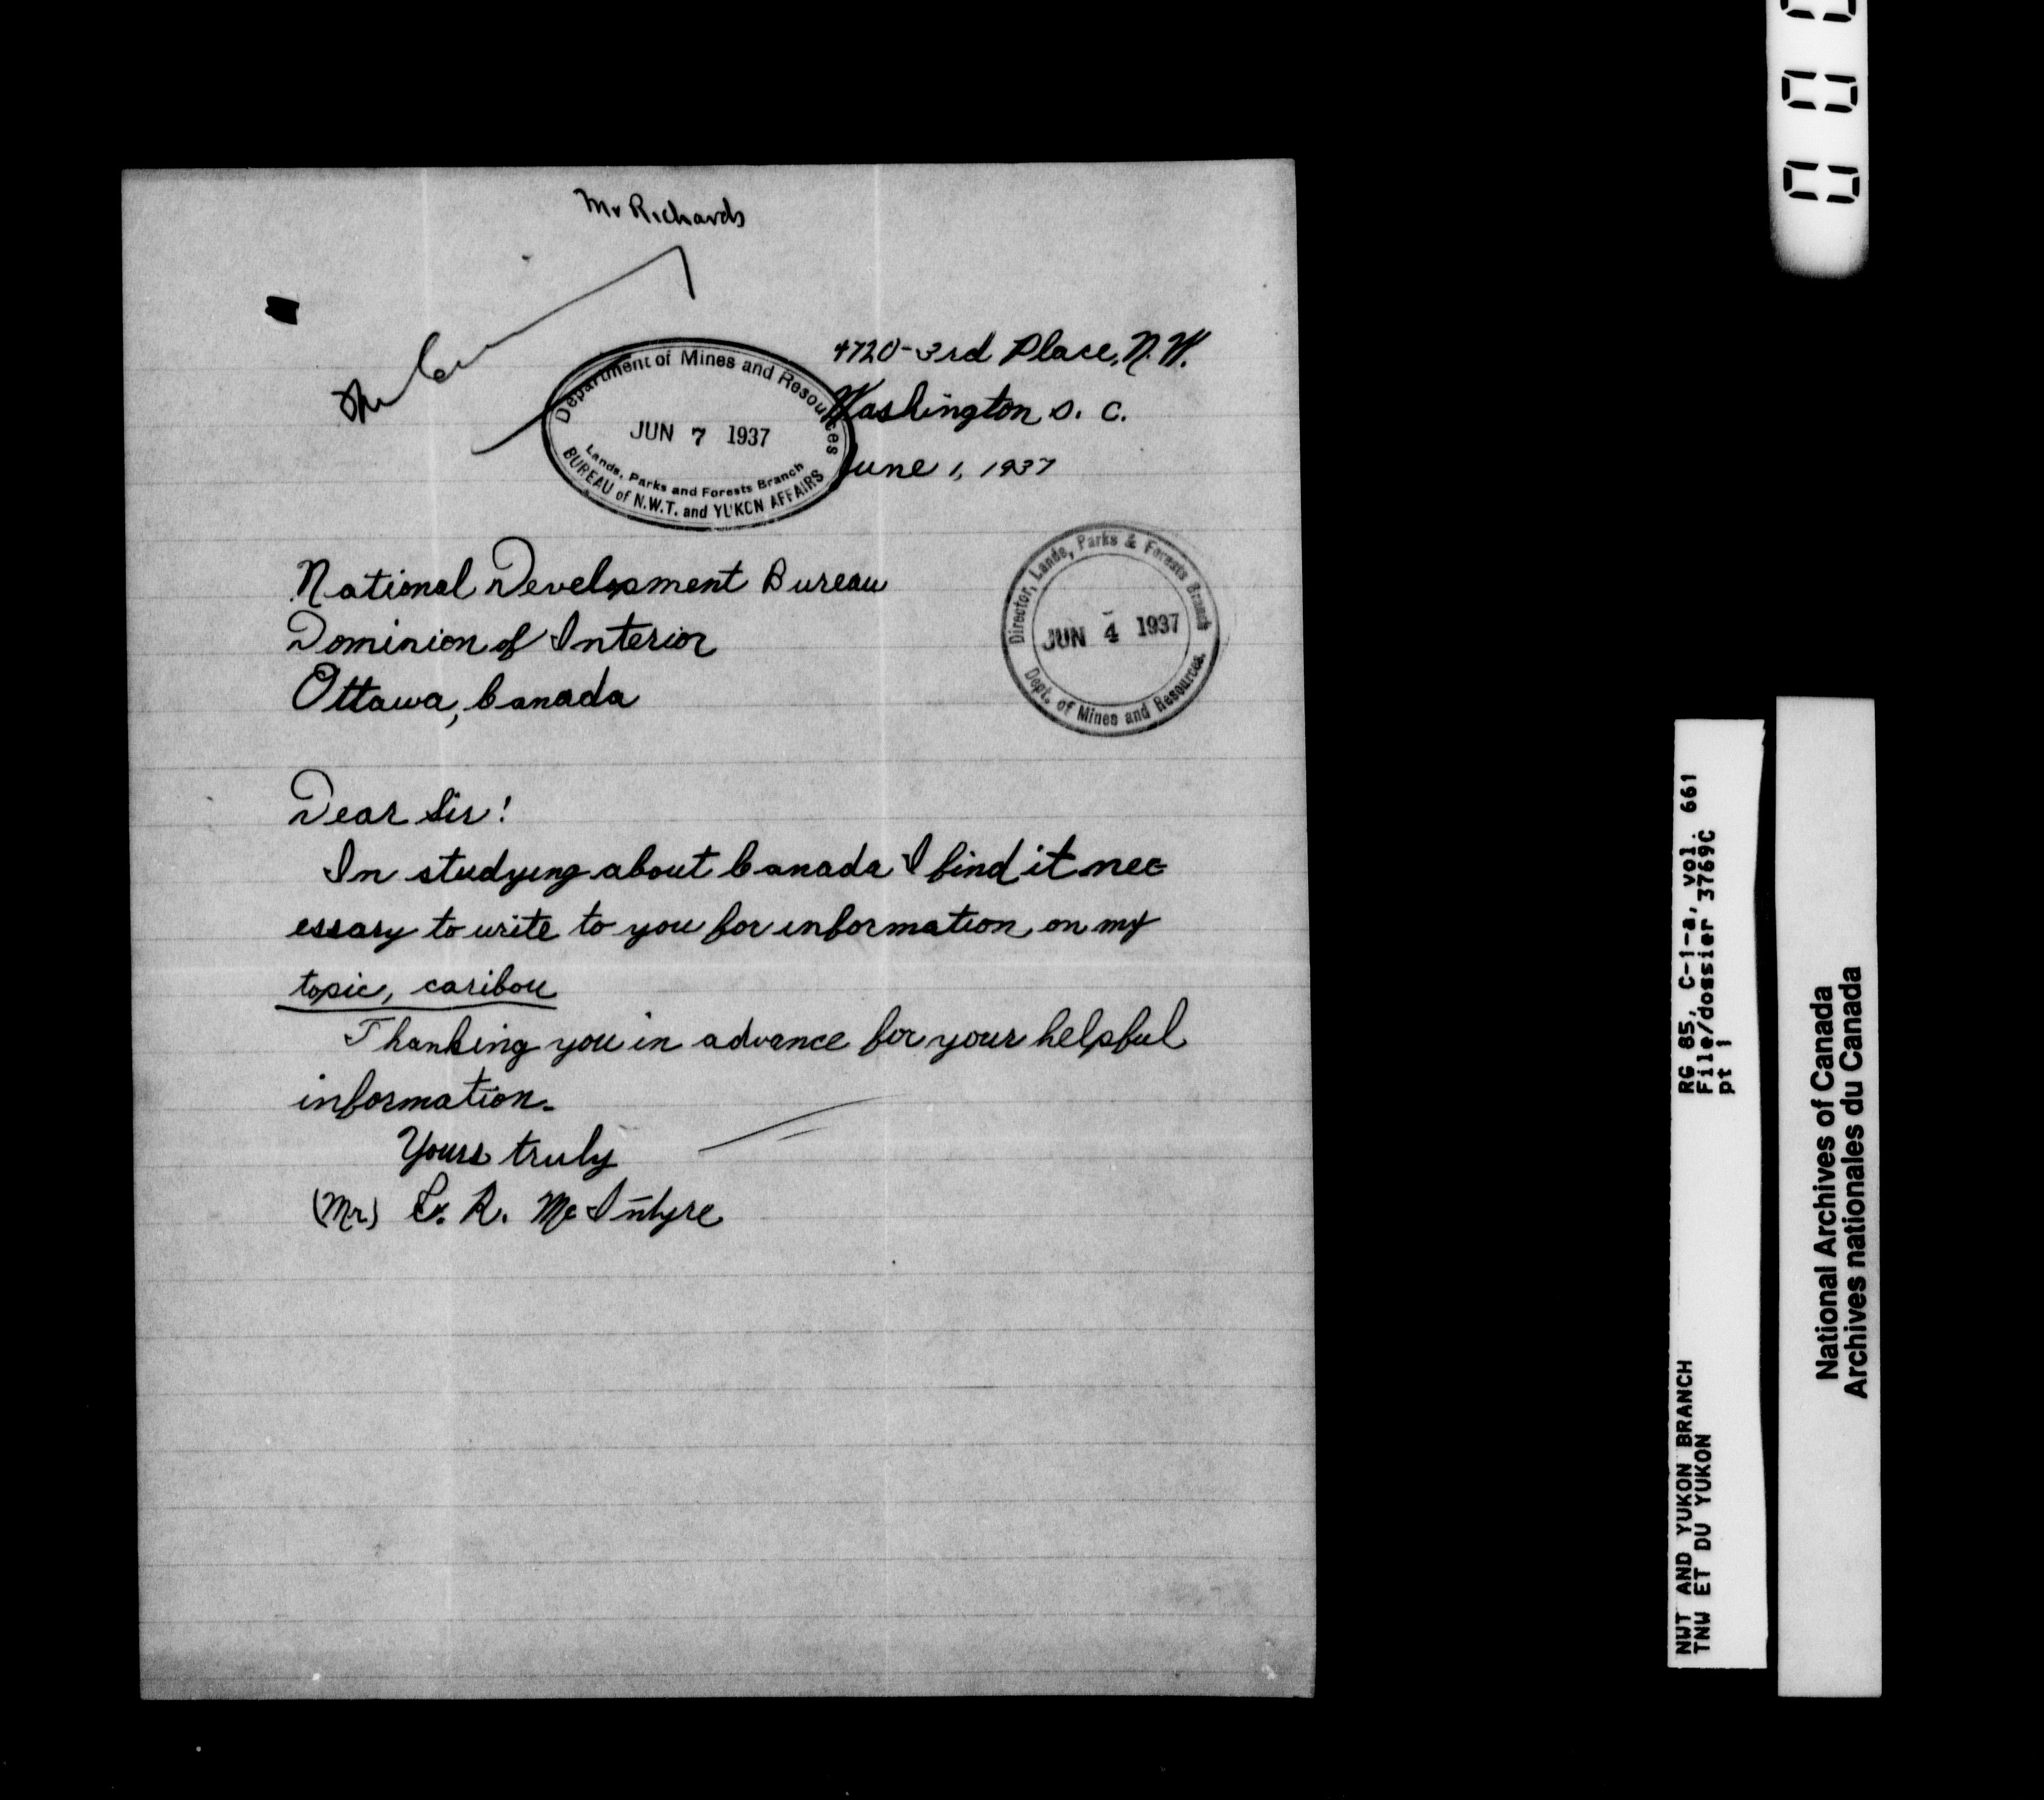 Mr Richards
4720-3rd Place, N.W.
Washington D. C.
June 1, 1937
Department of Mines and Resources
JUN 7 1937
Lands, Parks and Forests Branch
BUREAU of N.W.T. and YUKON AFFAIRS
National Development Bureau
Dominion of Interior
Ottawa, Canada
Director, Lands, Parks & Forests Branch
JUN 4 1937
Dept. of Mines and Resources.
Dear Sir!
In studying about Canada I find it nec-
essary to write to you for information on my
topic, caribou
Thanking you in advance for your helpful
information.
Yours truly
(Mr) R. McIntyre
RG 85, C-1-a, vol. 661
File/dossier 3769C
pt 1
NWT AND YUKON BRANCH
TNW ET DU YUKON
National Archives of Canada
Archives nationales du Canada